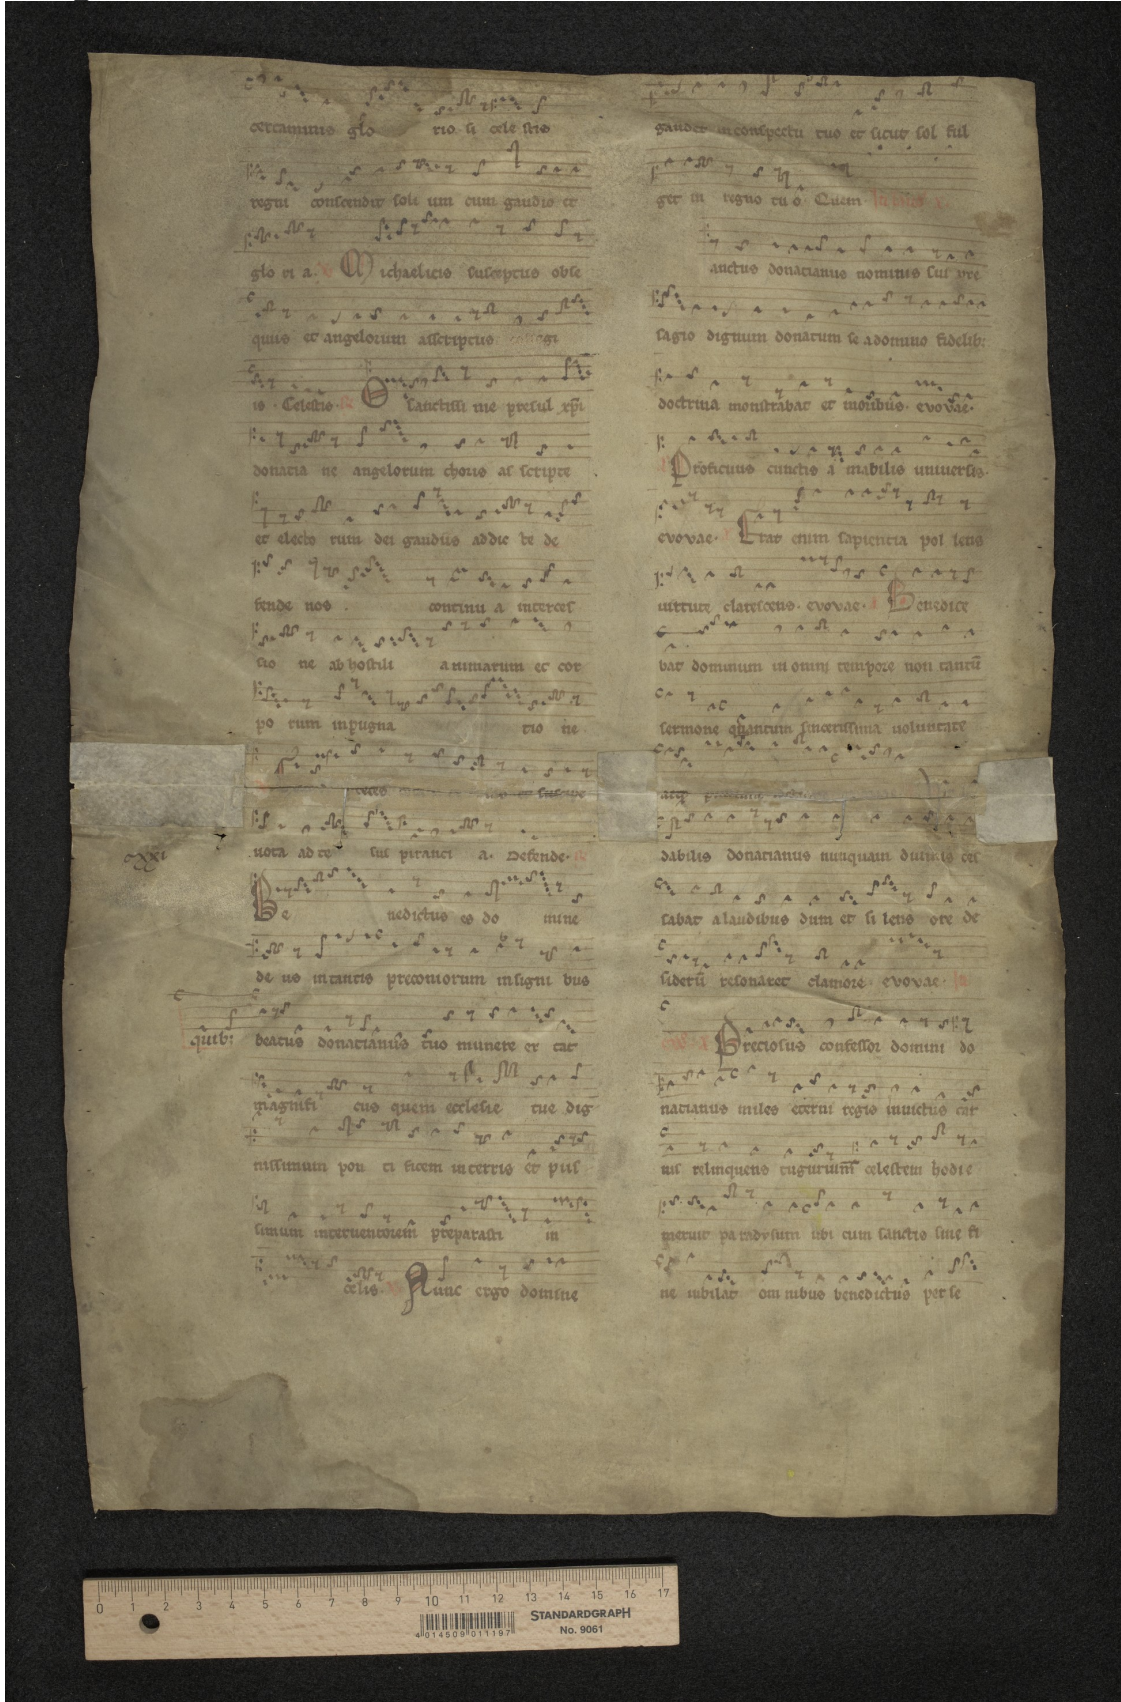 certaminis glo rio si cele stis
regni conscendit soli um cum gaudio et
glo ri a. Michaelicis susceptus obse
quiis et angelorum asscriptus
is. Celestis. O sanctissi me presul xpi
donatia ne angelorum choris as scripte
et electo rum dei gaudiis addic te de
fende nos. continu a interces
sio ne ab hostili animarum et cor
po rum inpugna tio ne
uota ad te sus piranti a. Defende.
cxxi
Be nedictus es do mine
de us in tantis preconiorum insigni bus
quib; beatus donatianus tuo munere er cat
magnifi cus quem ecclesie tue dig
nissimum pon ti ficem in terris et piis
simum interuentorem preparasti in
celis. Nunc ergo domine
gaudet in conspectu tuo et sicut sol ful
get in regno tu o. Quem.
anctus donatianus nominis sui pre
sagio dignum donatum se a domino fidelib;
doctrina monstrabat et moribus. evovae.
Proficuus cunctis a mabilis universis.
evovae. Erat enim sapientia pol lens
uirtute clarescens. evovae. Benedice
bat dominum in omni tempore non tantu
sermone quantum sincerissima uoluntate
dabilis donatianus nunquam diuinis ces
sabat a laudibus dum et si lens ore de
sideriu resonaret clamore. evovae.
Preciosus confessor domini do
natianus miles eterni regis inuictus car
nis relinquens tugurium celestem hodie
meruit paradysum ubi cum sanctis sine fi
ne iubilat omnibus benedictus per se
0 1 2 3 4 5 6 7 8 9 10 11 12 13 14 15 16 17
4 014509 011197
STANDARDGRAPH
No. 9061